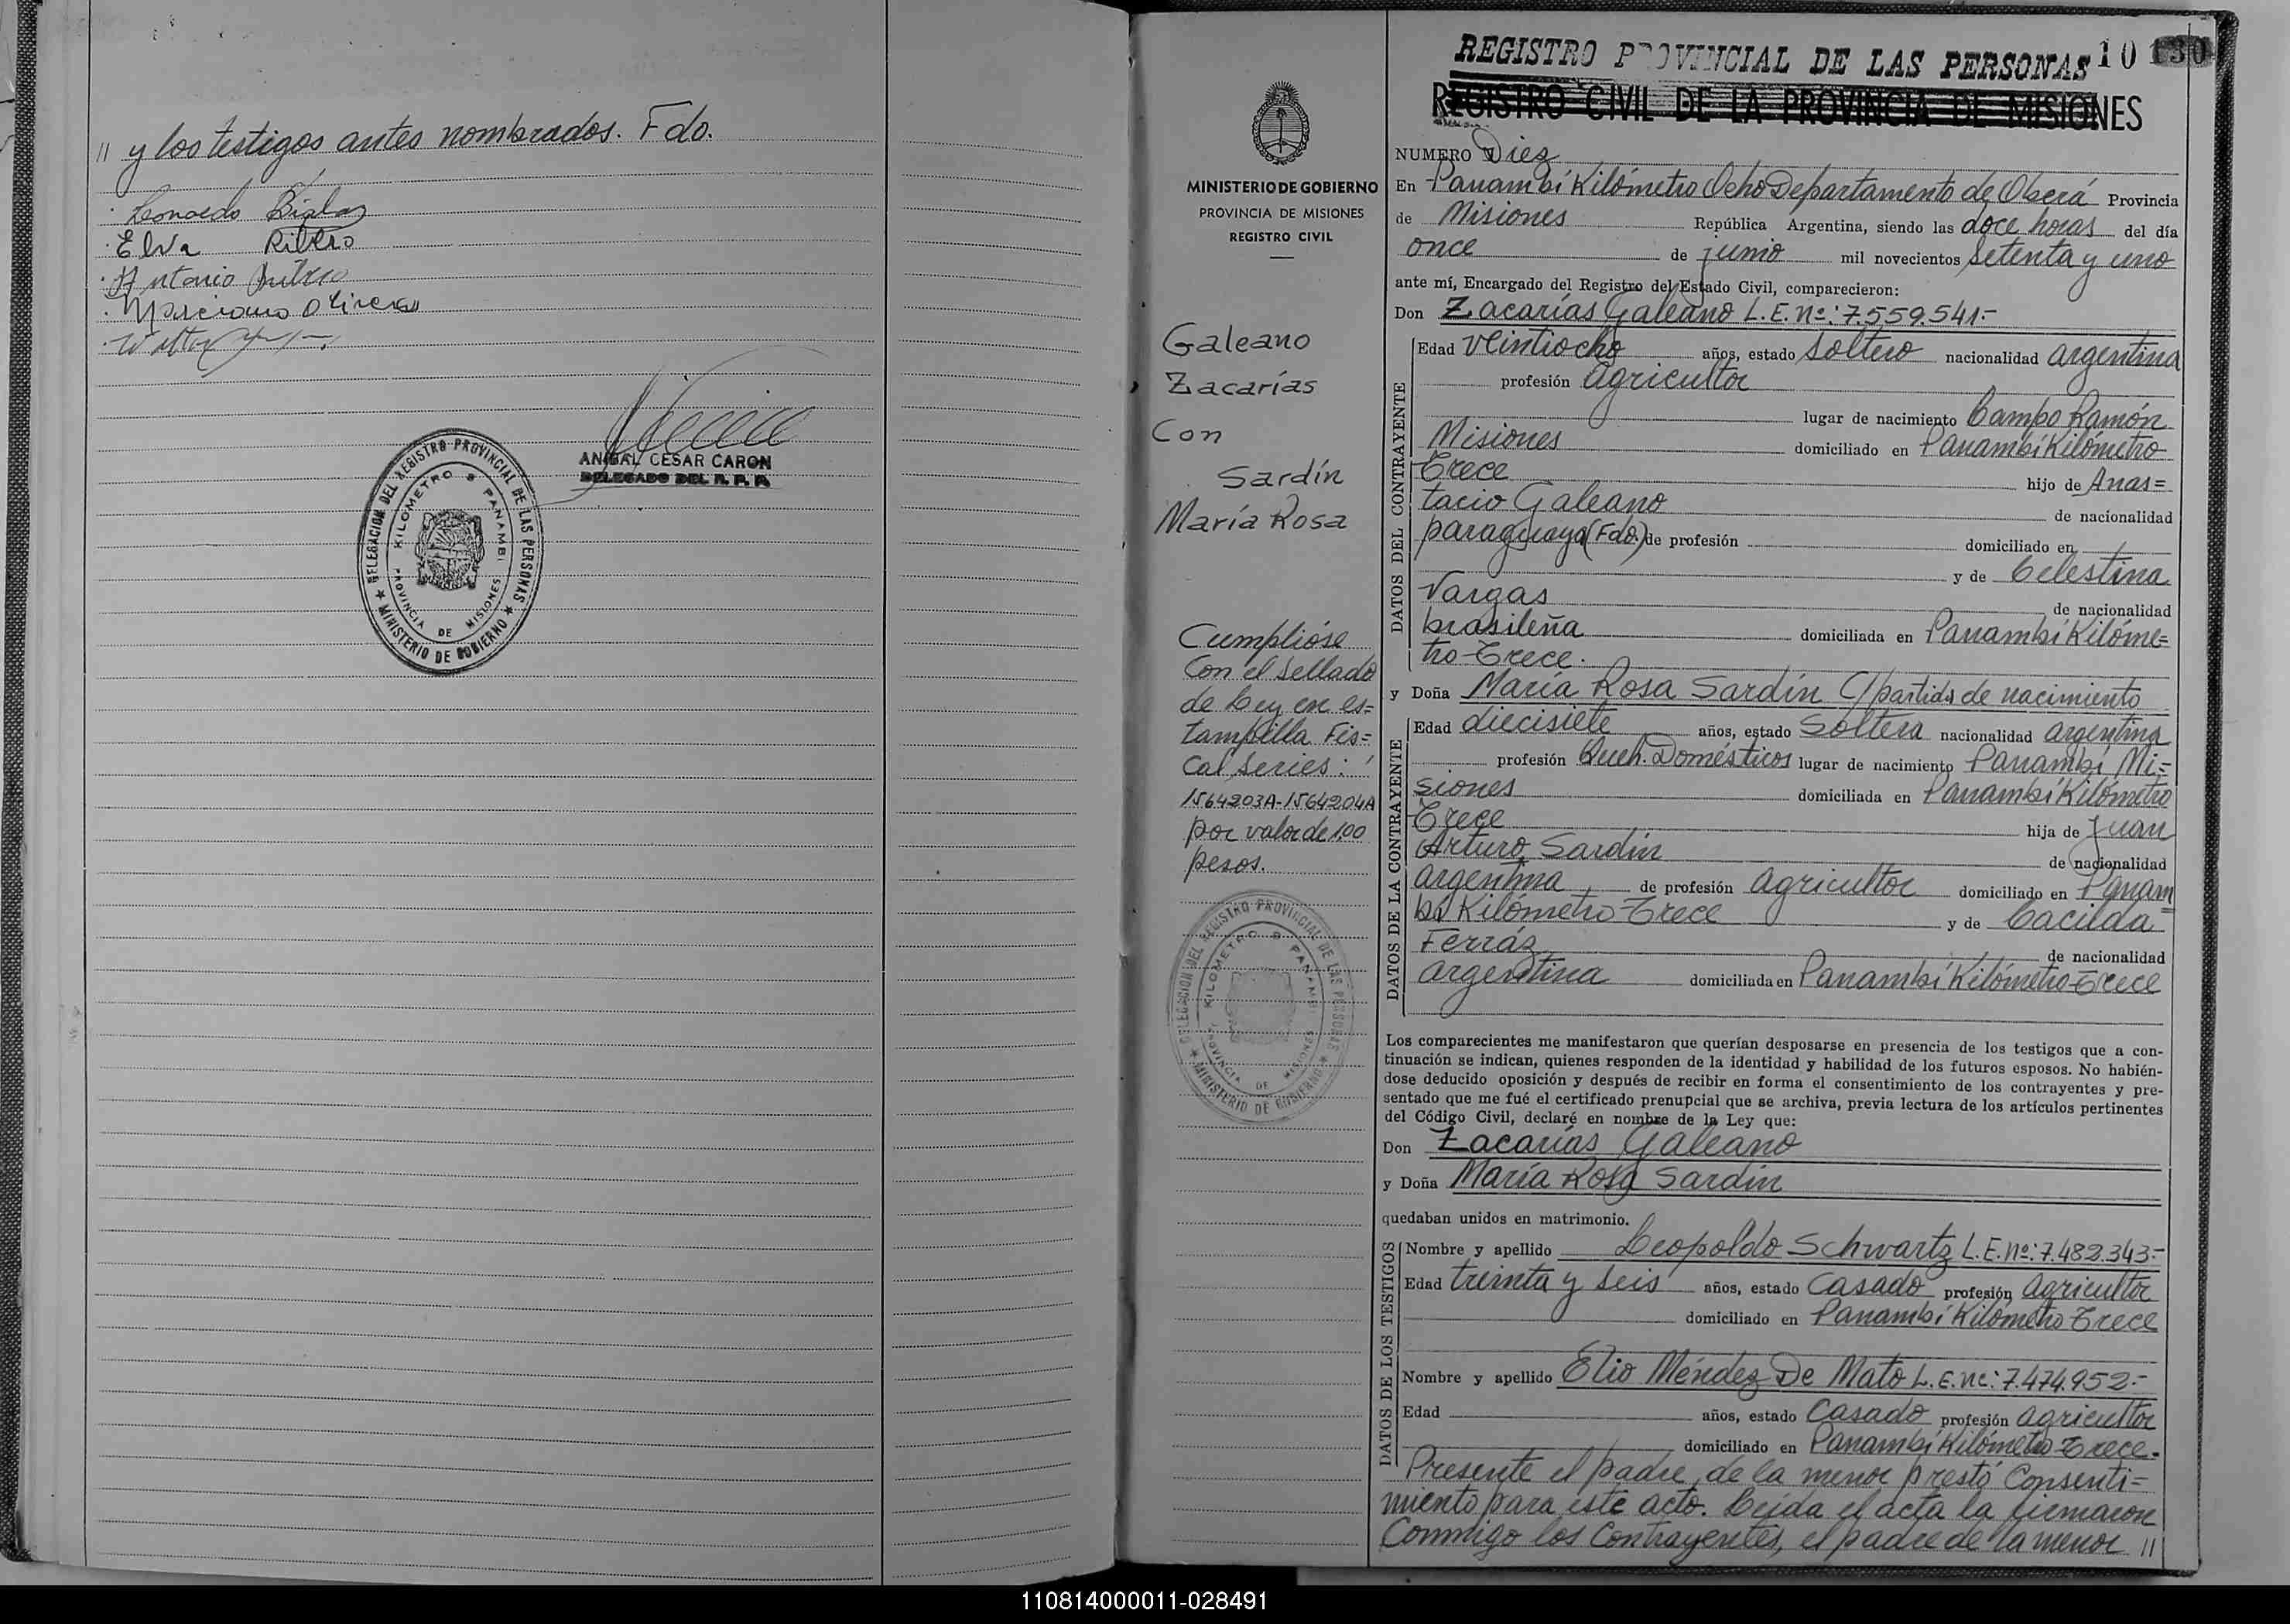 // y los testigos antes nombrados. Fdo.
Leonardo Bialas
Elva Ribero
Antonio
Marciano Olivera
ANIBAL CESAR CARON
DELEGADO DEL R. P. P.
DELEGACION DEL REGISTRO PROVINCIAL DE LAS PERSONAS
KILOMETRO 8 PANAMBI
PROVINCIA DE MISIONES
★ MINISTERIO DE GOBIERNO ★
MINISTERIO DE GOBIERNO
PROVINCIA DE MISIONES
REGISTRO CIVIL
Galeano
Zacarías
Con
Sardín
María Rosa
Cumplióse
Con el sellado
de Ley en es=
tampilla Fis=
Cal series:
1564203A-1564204A
por valor de 1.00
pesos.
DELEGACION DEL REGISTRO PROVINCIAL DE LAS PERSONAS
KILOMETRO 8 PANAMBI
PROVINCIA DE MISIONES
★ MINISTERIO DE GOBIERNO ★
REGISTRO PROVINCIAL DE LAS PERSONAS 10 130
REGISTRO CIVIL DE LA PROVINCIA DE MISIONES
NUMERO Diez
En Panambí Kilómetro Ocho Departamento de Oberá Provincia
de Misiones República Argentina, siendo las doce horas del día
once de junio mil novecientos Setenta y uno
ante mí, Encargado del Registro del Estado Civil, comparecieron:
Don Zacarías Galeano L.E. nº: 7.559.541.-
DATOS DEL CONTRAYENTE
Edad veintiocho años, estado Soltero nacionalidad argentina
profesión agricultor
lugar de nacimiento Campo Ramón
Misiones domiciliado en Panambí Kilómetro
Trece hijo de Anas=
tacio Galeano de nacionalidad
paraguaya (Fdo.) de profesión domiciliado en
y de Celestina
Vargas de nacionalidad
brasileña domiciliada en Panambí Kilóme=
tro Trece.
y Doña María Rosa Sardín C/partida de nacimiento
DATOS DE LA CONTRAYENTE
Edad diecisiete años, estado Soltera nacionalidad argentina
profesión Queh. Domésticos lugar de nacimiento Panambí Mi=
siones domiciliada en Panambí Kilómetro
Trece hija de Juan
Arturo Sardín de nacionalidad
argentina de profesión agricultor domiciliado en Panam=
bí Kilómetro Trece y de Cacilda
Ferráz de nacionalidad
argentina domiciliada en Panambí Kilómetro Trece
Los comparecientes me manifestaron que querían desposarse en presencia de los testigos que a con-
tinuación se indican, quienes responden de la identidad y habilidad de los futuros esposos. No habién-
dose deducido oposición y después de recibir en forma el consentimiento de los contrayentes y pre-
sentado que me fué el certificado prenupcial que se archiva, previa lectura de los artículos pertinentes
del Código Civil, declaré en nombre de la Ley que:
Don Zacarías Galeano
y Doña María Rosa Sardín
quedaban unidos en matrimonio.
DATOS DE LOS TESTIGOS
Nombre y apellido Leopoldo Schwartz L.E. nº: 7.482.343.-
Edad treinta y seis años, estado Casado profesión agricultor
domiciliado en Panambí Kilómetro Trece
Nombre y apellido Elio Méndez De Mato L.E. nº: 7.474.952.-
Edad años, estado Casado profesión agricultor
domiciliado en Panambí Kilómetro Trece.
Presente el padre de la menor prestó Consenti=
miento para este acto. Leída el acta la firmaron
Conmigo los Contrayentes, el padre de la menor //
110814000011-028491